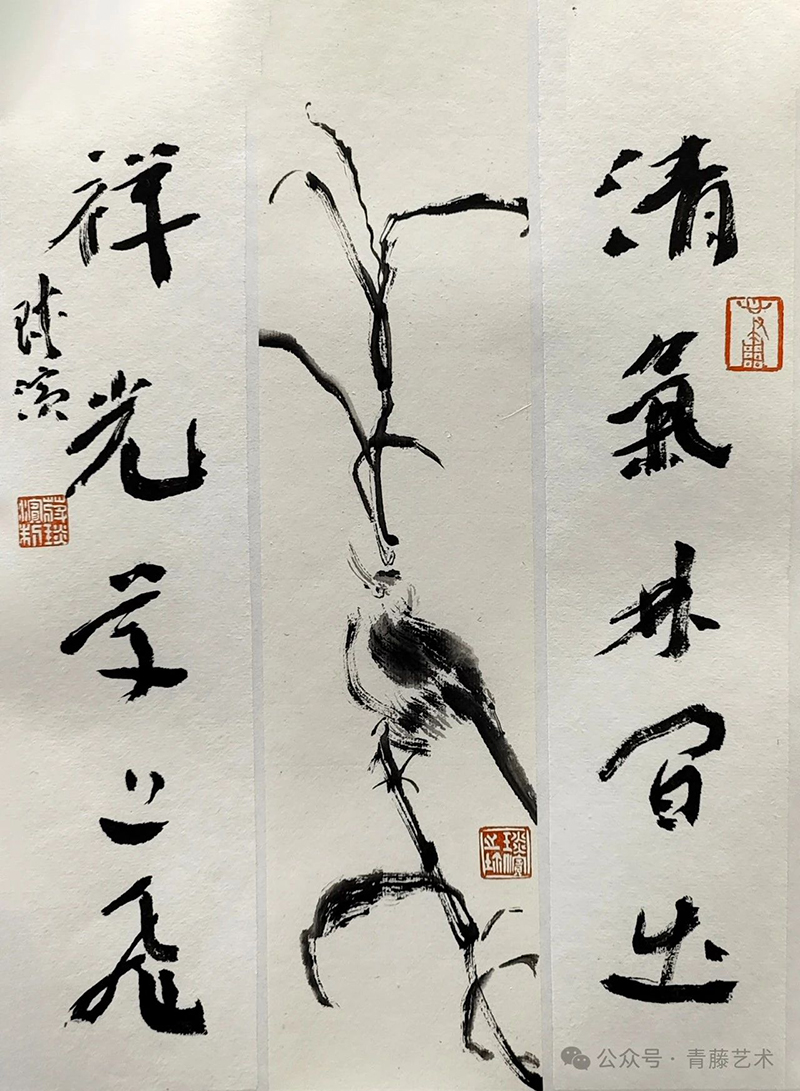 清氣林間出
祥光掌上飛
琰濱
公众号·青藤艺术